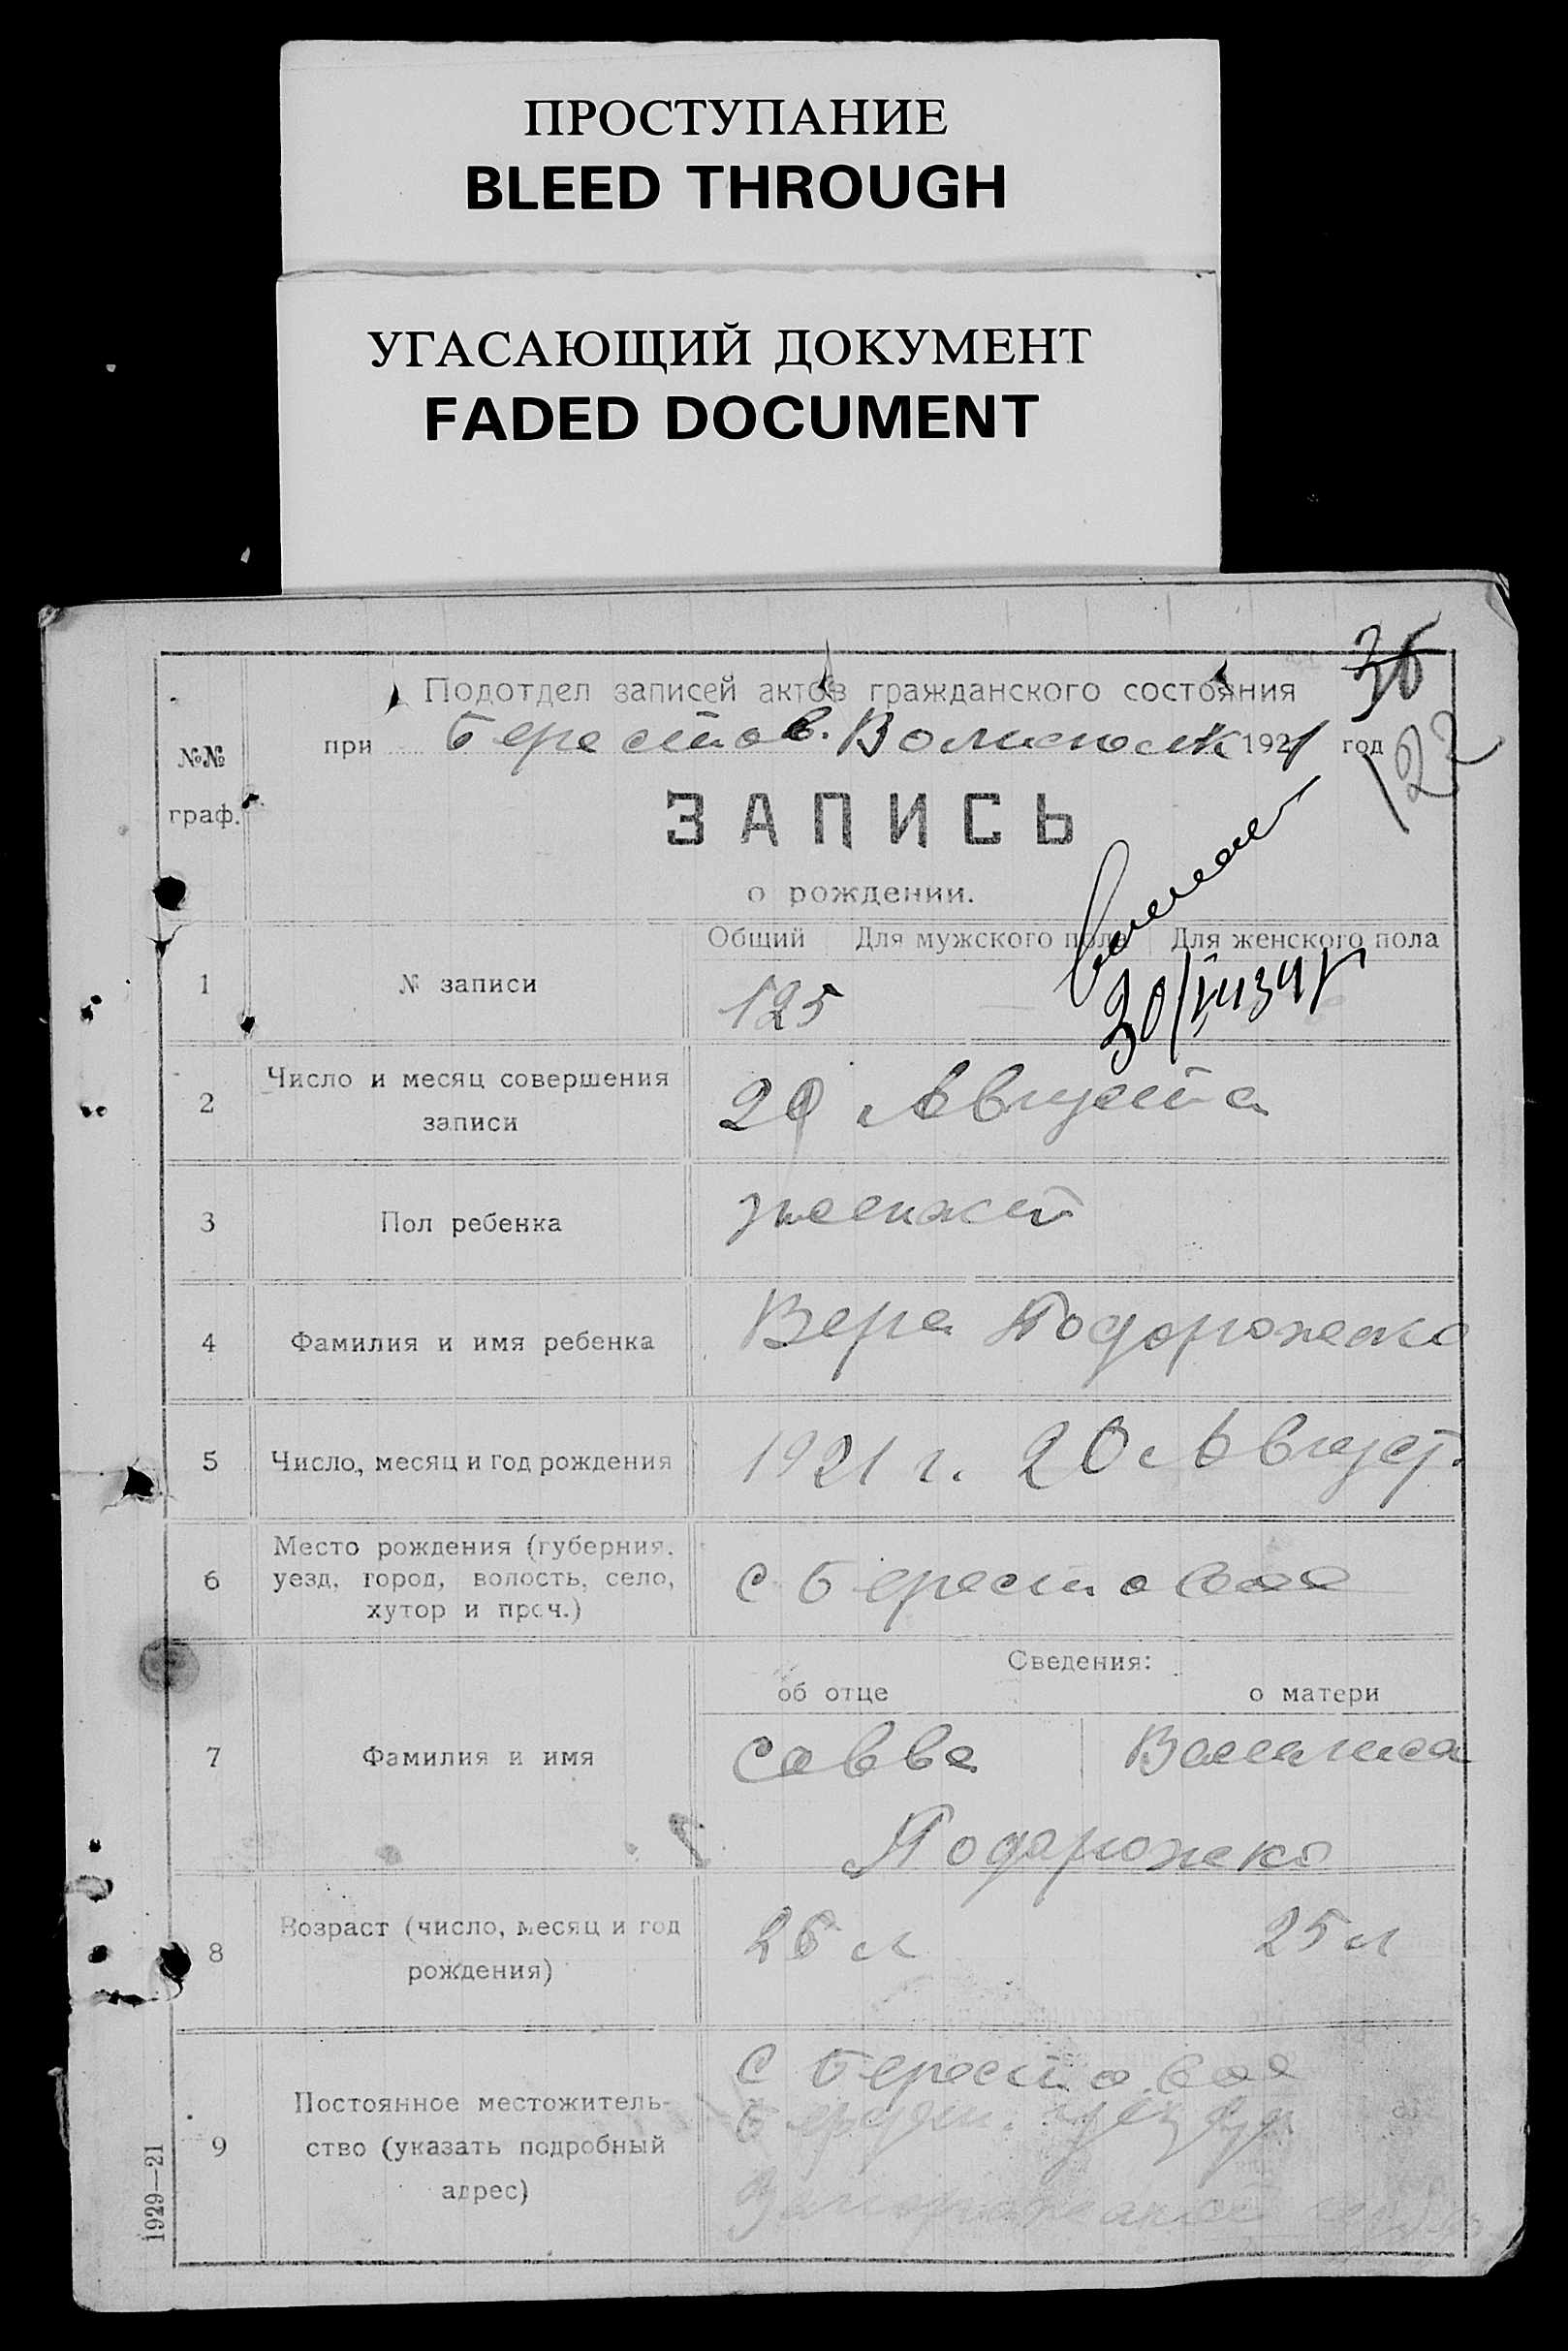 ПРОСТУПАНИЕ
BLEED THROUGH
УГАСАЮЩИЙ ДОКУМЕНТ
FADED DOCUMENT
36
Подотдел записей актов гражданского состояния
при Берестов. Волисполк 1921 год
122
№№
граф.
ЗАПИСЬ
о рождении.
Общий Для мужского пола Для женского пола
1 № записи 125
2 Число и месяц совершения
записи
29 Августа
3 Пол ребенка женский
4 Фамилия и имя ребенка Вера Подорожко
5 Число, месяц и год рождения 1921 г. 20 Август.
6 Место рождения (губерния,
уезд, город, волость, село,
хутор и проч.)
с Берестовое
Сведения:
об отце о матери
7 Фамилия и имя Савва Василиса
Подорожко
8 Возраст (число, месяц и год
рождения)
26 л 25 л
9 Постоянное местожитель-
ство (указать подробный
адрес)
с Берестовое
Бердян. уезда
Запорожской
1929—21